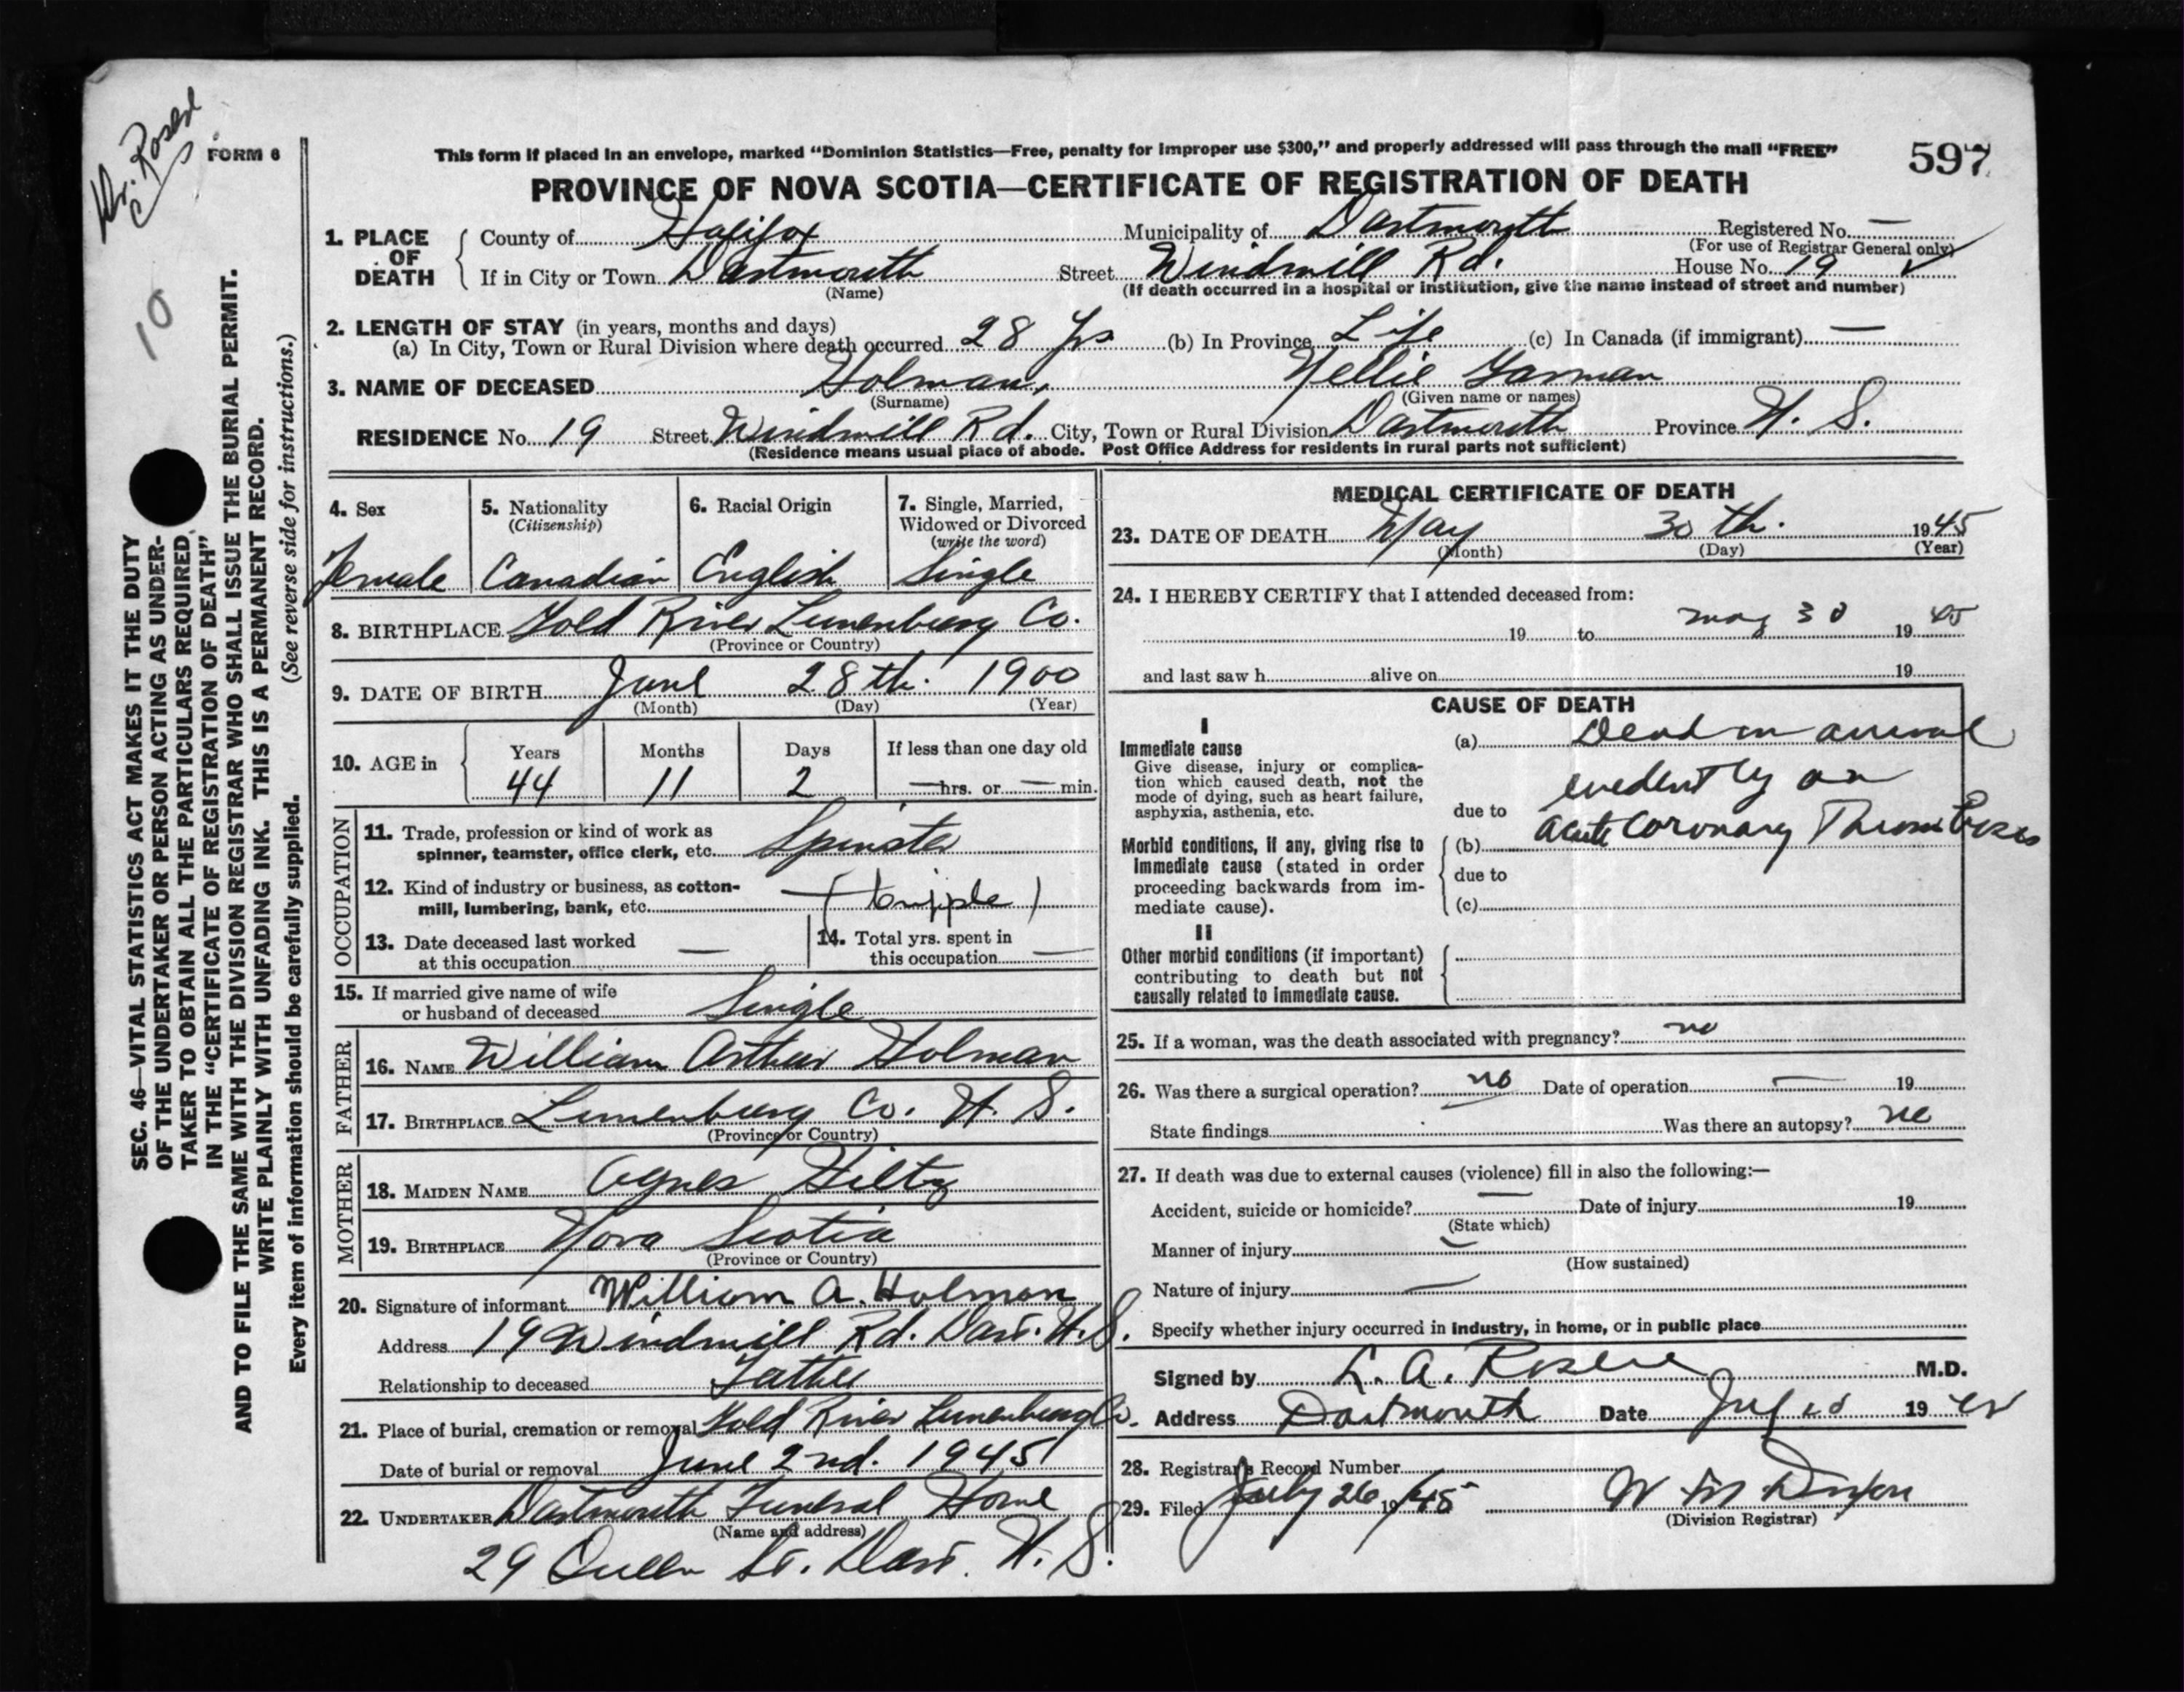 Dr. Rosere
FORM 6
10
This form if placed in an envelope, marked “Dominion Statistics—Free, penalty for improper use $300,” and properly addressed will pass through the mail “FREE”
597
PROVINCE OF NOVA SCOTIA—CERTIFICATE OF REGISTRATION OF DEATH
1. PLACE OF DEATH
County of Halifax Municipality of Dartmouth Registered No. —
(For use of Registrar General only)
If in City or Town Dartmouth Street Windmill Rd. House No. 19
(Name) (If death occurred in a hospital or institution, give the name instead of street and number)
2. LENGTH OF STAY (in years, months and days)
(a) In City, Town or Rural Division where death occurred 28 yrs (b) In Province Life (c) In Canada (if immigrant) —
3. NAME OF DECEASED Holman, Nellie
(Surname) (Given name or names)
RESIDENCE No. 19 Street Windmill Rd. City, Town or Rural Division Dartmouth Province N. S.
(Residence means usual place of abode. Post Office Address for residents in rural parts not sufficient)
4. Sex
Female
5. Nationality
(Citizenship)
Canadian
6. Racial Origin
English
7. Single, Married,
Widowed or Divorced
(write the word)
Single
8. BIRTHPLACE Gold River Lunenburg Co.
(Province or Country)
9. DATE OF BIRTH June 28th. 1900
(Month) (Day) (Year)
10. AGE in
Years Months Days If less than one day old
44 11 2 — hrs. or — min.
OCCUPATION
11. Trade, profession or kind of work as
spinner, teamster, office clerk, etc. Spinster
12. Kind of industry or business, as cotton-
mill, lumbering, bank, etc. (Cripple)
13. Date deceased last worked
at this occupation —
14. Total yrs. spent in
this occupation —
15. If married give name of wife
or husband of deceased Single
FATHER
16. NAME William Arthur Holman
17. BIRTHPLACE Lunenburg Co. N. S.
(Province or Country)
MOTHER
18. MAIDEN NAME Agnes Hiltz
19. BIRTHPLACE Nova Scotia
(Province or Country)
20. Signature of informant William A. Holman
Address 19 Windmill Rd. Dart. N. S.
Relationship to deceased Father
21. Place of burial, cremation or removal Gold River Lunenburg Co.
Date of burial or removal June 2nd. 1945
22. UNDERTAKER Dartmouth Funeral Home
(Name and address)
29 Queen St. Dart. N. S.
MEDICAL CERTIFICATE OF DEATH
23. DATE OF DEATH May 30th. 1945
(Month) (Day) (Year)
24. I HEREBY CERTIFY that I attended deceased from:
19 to May 30 19 45
and last saw h alive on 19
CAUSE OF DEATH
I
Immediate cause
Give disease, injury or complica-
tion which caused death, not the
mode of dying, such as heart failure,
asphyxia, asthenia, etc.
(a) Dead on arrival
evidently an
due to
Morbid conditions, if any, giving rise to
immediate cause (stated in order
proceeding backwards from im-
mediate cause).
(b) acute Coronary Thrombosis
due to
(c)
II
Other morbid conditions (if important)
contributing to death but not
causally related to immediate cause.
25. If a woman, was the death associated with pregnancy? no
26. Was there a surgical operation? no Date of operation — 19
State findings Was there an autopsy? no
27. If death was due to external causes (violence) fill in also the following:—
Accident, suicide or homicide? — Date of injury 19
(State which)
Manner of injury —
(How sustained)
Nature of injury —
Specify whether injury occurred in industry, in home, or in public place
Signed by L. A. Rosere M.D.
Address Dartmouth Date 19
28. Registrar's Record Number
29. Filed July 26 19 45 W M Dixon
(Division Registrar)
SEC. 46—VITAL STATISTICS ACT MAKES IT THE DUTY
OF THE UNDERTAKER OR PERSON ACTING AS UNDER-
TAKER TO OBTAIN ALL THE PARTICULARS REQUIRED
IN THE “CERTIFICATE OF REGISTRATION OF DEATH”
AND TO FILE THE SAME WITH THE DIVISION REGISTRAR WHO SHALL ISSUE THE BURIAL PERMIT.
WRITE PLAINLY WITH UNFADING INK. THIS IS A PERMANENT RECORD.
Every item of information should be carefully supplied. (See reverse side for instructions.)